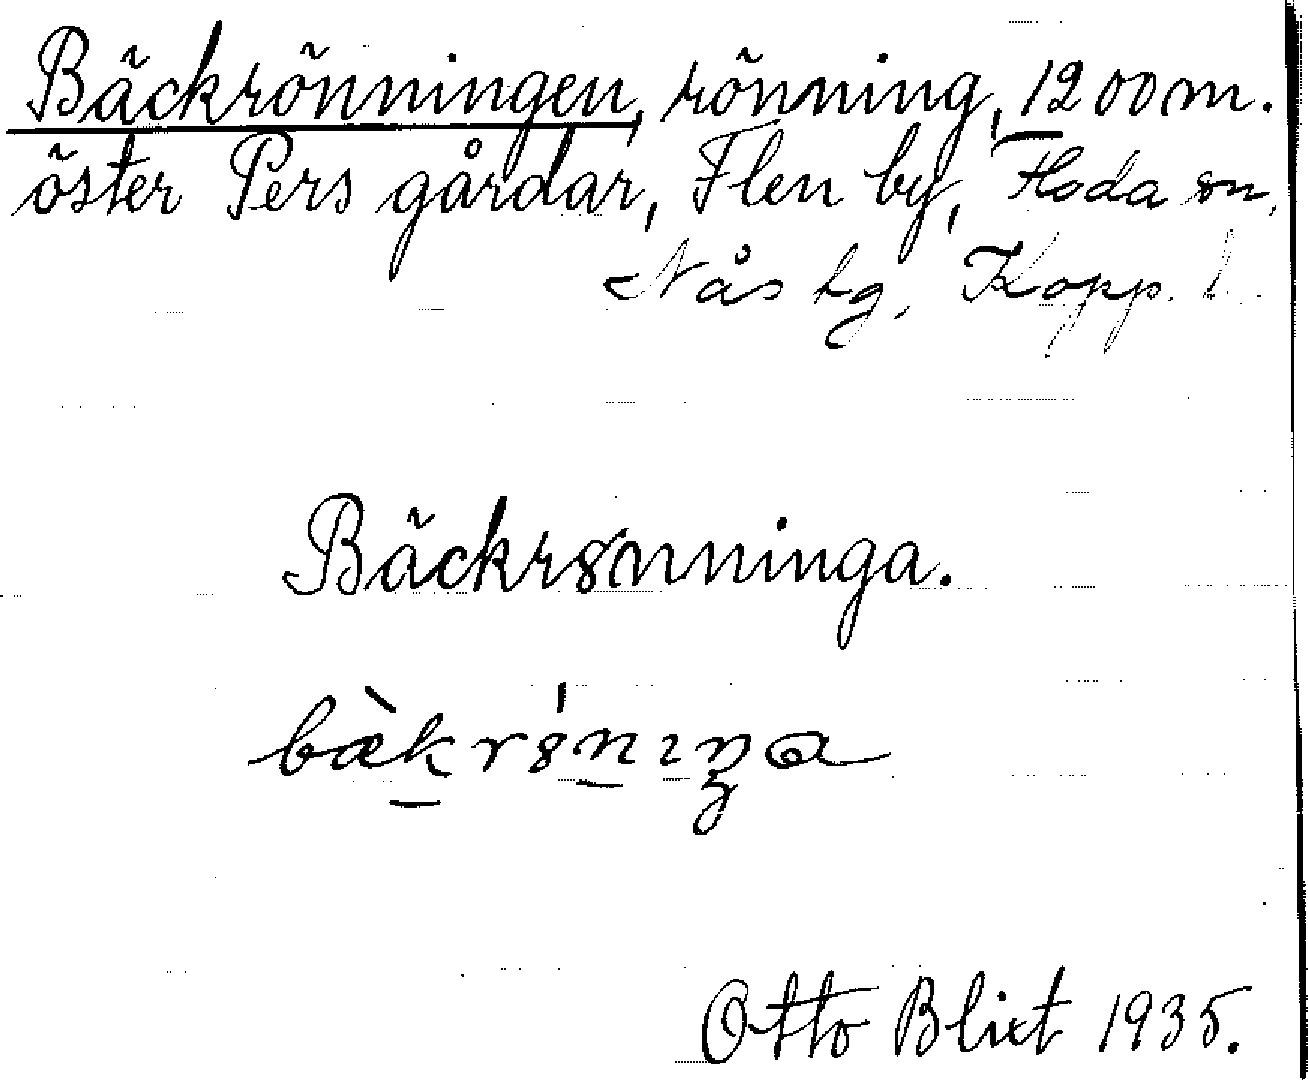 Bäckrönningen, rönning, 1200 m.
öster Pers gårdar, Flen by, Floda sn,
Nås tg, Kopp. l.
Bäckrönninga.
bæ̀krö́nıŋa
Otto Blixt 1935.